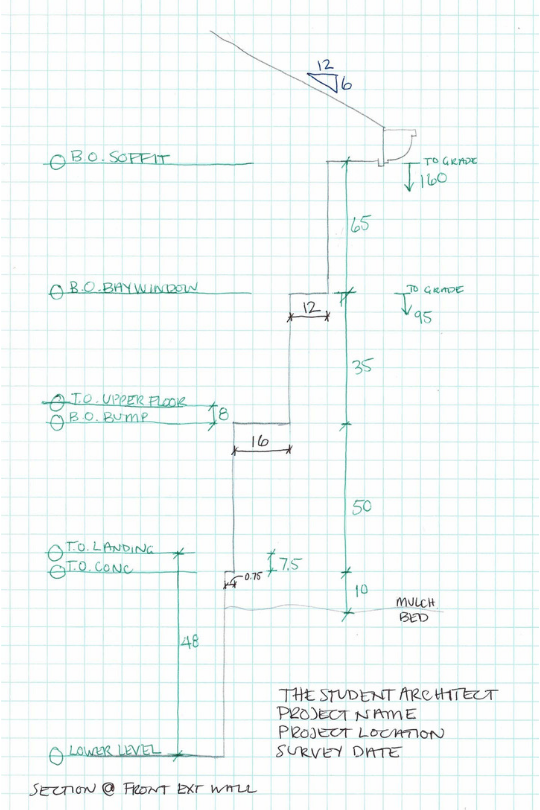 12
6
B.O. SOFFIT
TO GRADE
160
65
B.O. BAY WINDOW
TO GRADE
12
95
35
T.O. UPPER FLOOR
8
B.O. BUMP
16
50
T.O. LANDING
7.5
T.O. CONC
0.75
10
MULCH
BED
48
THE STUDENT ARCHITECT
PROJECT NAME
PROJECT LOCATION
SURVEY DATE
LOWER LEVEL
SECTION @ FRONT EXT WALL